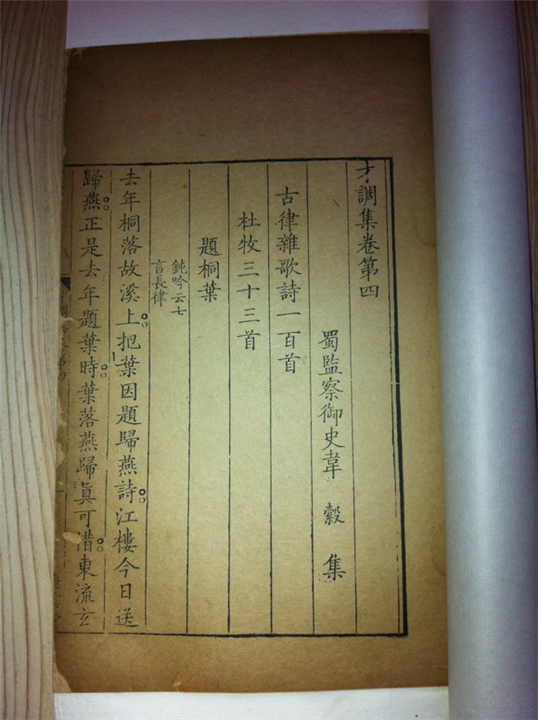 才調集卷第四
蜀監察御史韋 縠 集
古律雜歌詩一百首
杜牧三十三首
題桐葉
鈍吟云七
言長律
去年桐落故溪上把葉因題歸燕詩江樓今日送
歸燕正是去年題葉時葉落燕歸真可惜東流玄